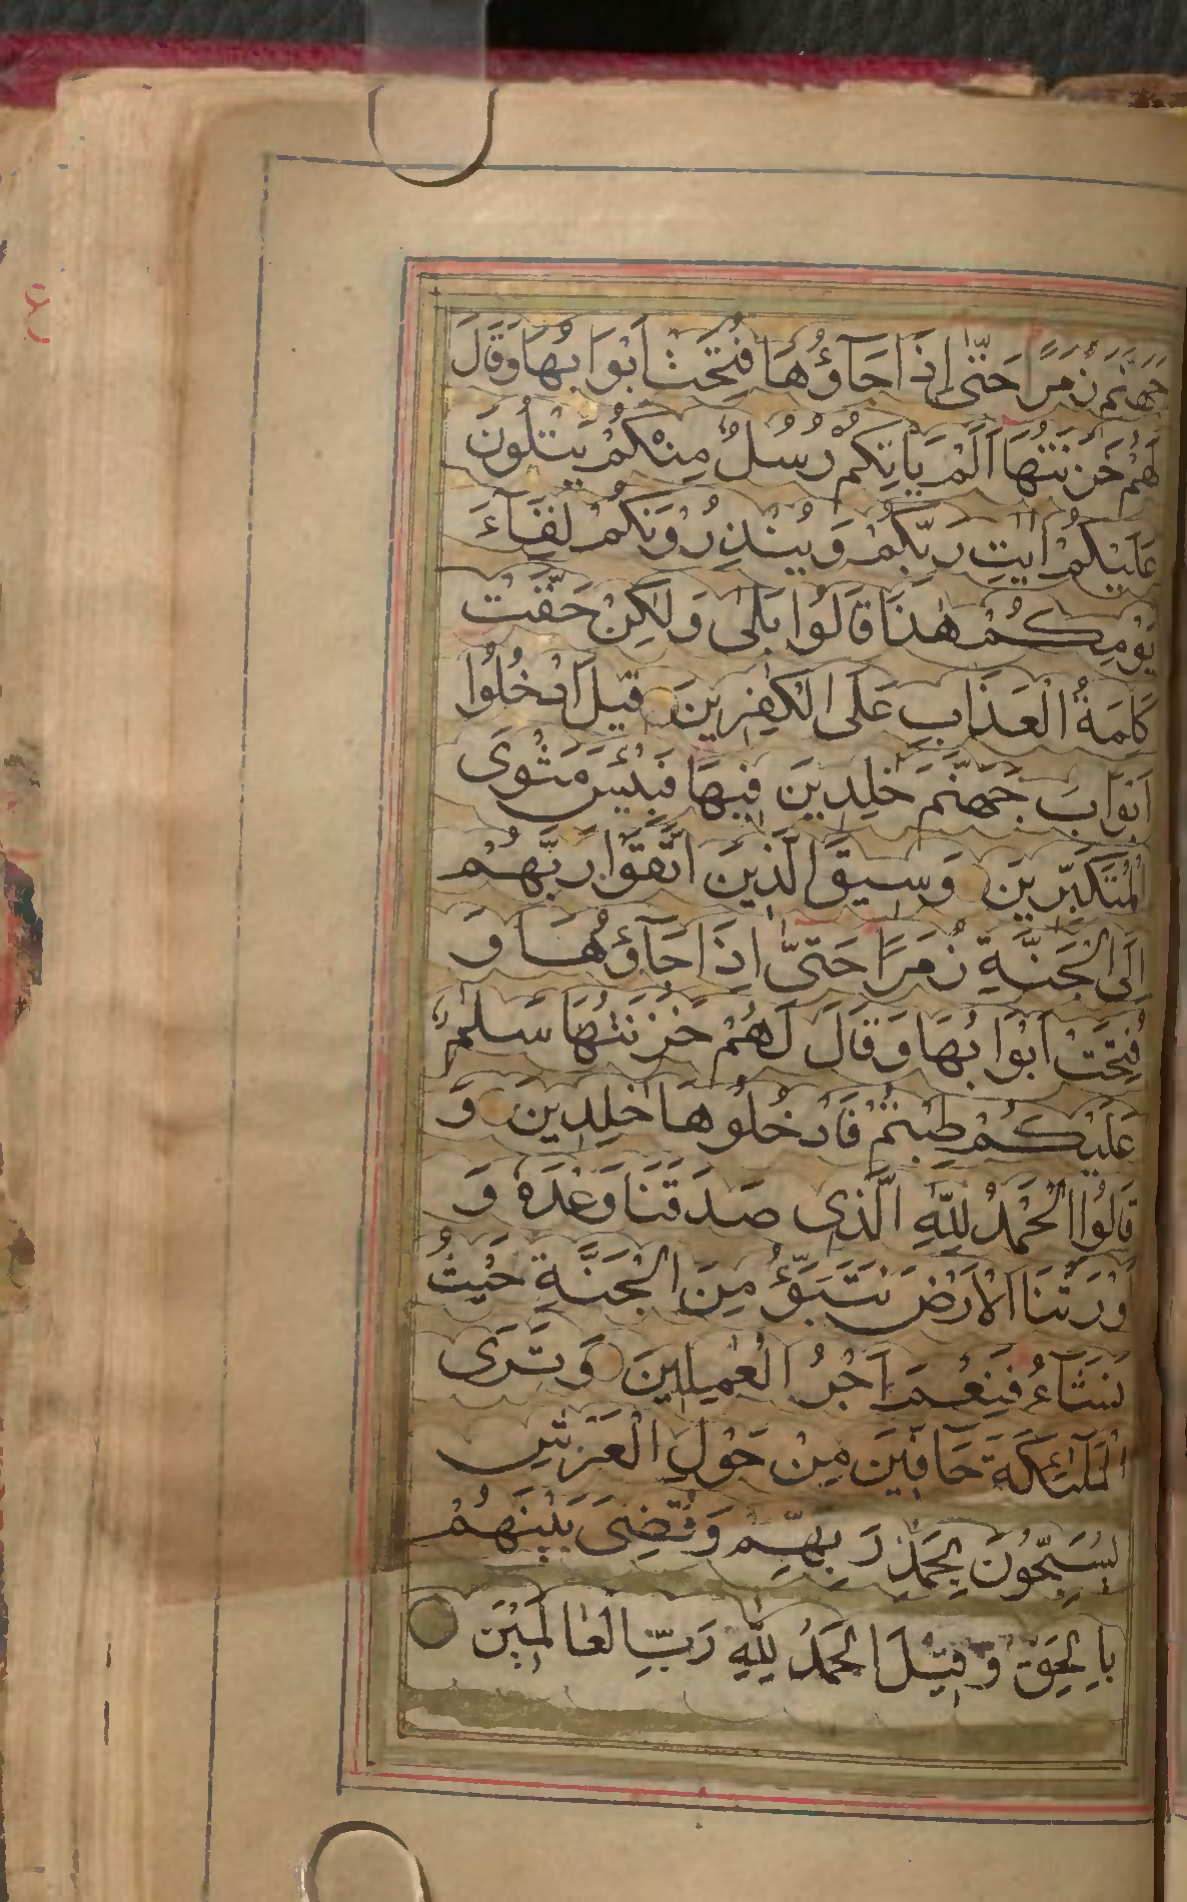 جَهَنَّمَ زُمَرًا حَتّٰى اِذَا جَآؤُهَا فُتِحَتْ اَبْوَابُهَا وَقَالَ
لَهُمْ خَزَنَتُهَا اَلَمْ يَاْتِكُمْ رُسُلٌ مِنْكُمْ يَتْلُونَ
عَلَيْكُمْ اٰيٰتِ رَبِّكُمْ وَيُنْذِرُوْنَكُمْ لِقَآءَ
يَوْمِكُمْ هٰذَا قَالُوْا بَلٰى وَلٰكِنْ حَقَّتْ
كَلِمَةُ الْعَذَابِ عَلَى الْكٰفِرِينَ قِيلَ ادْخُلُوْا
اَبْوَابَ جَهَنَّمَ خٰلِدِينَ فِيهَا فَبِئْسَ مَثْوَى
الْمُتَكَبِّرِينَ وَسِيقَ الَّذِينَ اتَّقَوْا رَبَّهُمْ
اِلَى الْجَنَّةِ زُمَرًا حَتّٰى اِذَا جَآؤُهَا وَ
فُتِحَتْ اَبْوَابُهَا وَقَالَ لَهُمْ خَزَنَتُهَا سَلٰمٌ
عَلَيْكُمْ طِبْتُمْ فَادْخُلُوهَا خٰلِدِينَ وَ
قَالُوا الْحَمْدُ لِلّٰهِ الَّذِى صَدَقَنَا وَعْدَهُ وَ
وْرَثَنَا الْاَرْضَ نَتَبَوَّؤُ مِنَ الْجَنَّةِ حَيْثُ
نَشَآءُ فَنِعْمَ اَجْرُ الْعٰمِلِينَ وَتَرَى
الْمَلٰٓئِكَةَ حَآفِّينَ مِنْ حَوْلِ الْعَرْشِ
يُسَبِّحُونَ بِحَمْدِ رَبِّهِمْ وَقُضِىَ بَيْنَهُمْ
بِالْحَقِّ وَقِيْلَ الْحَمْدُ لِلّٰهِ رَبِّ الْعَالَمِيْنَ